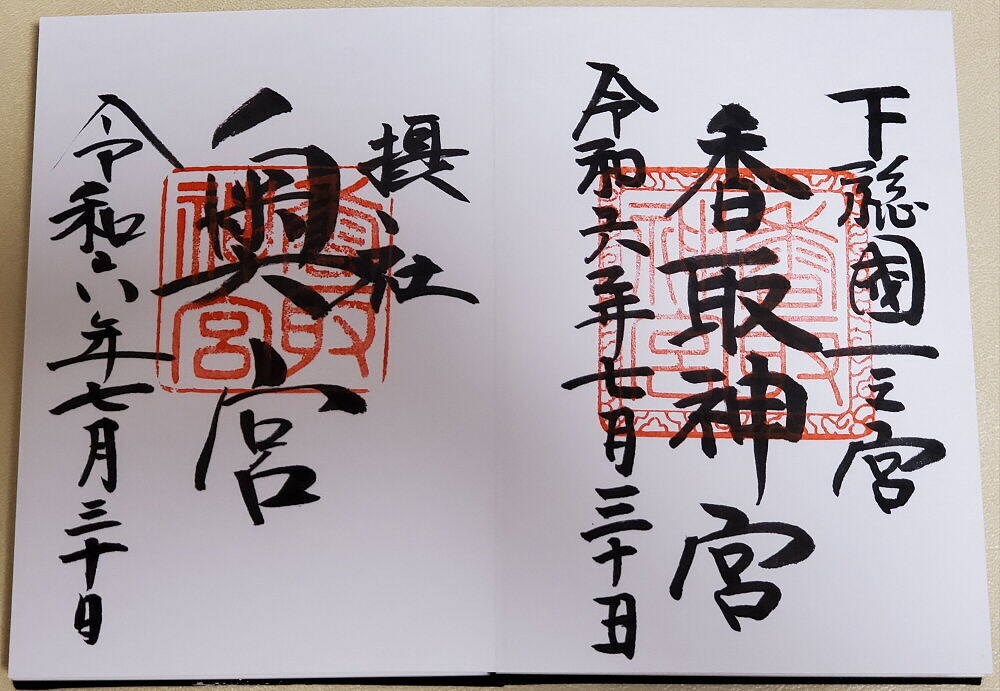 下総國一之宮
香取神宮
令和六年七月三十日
香取神宮
摂社
奥宮
令和六年七月三十日
香取神宮